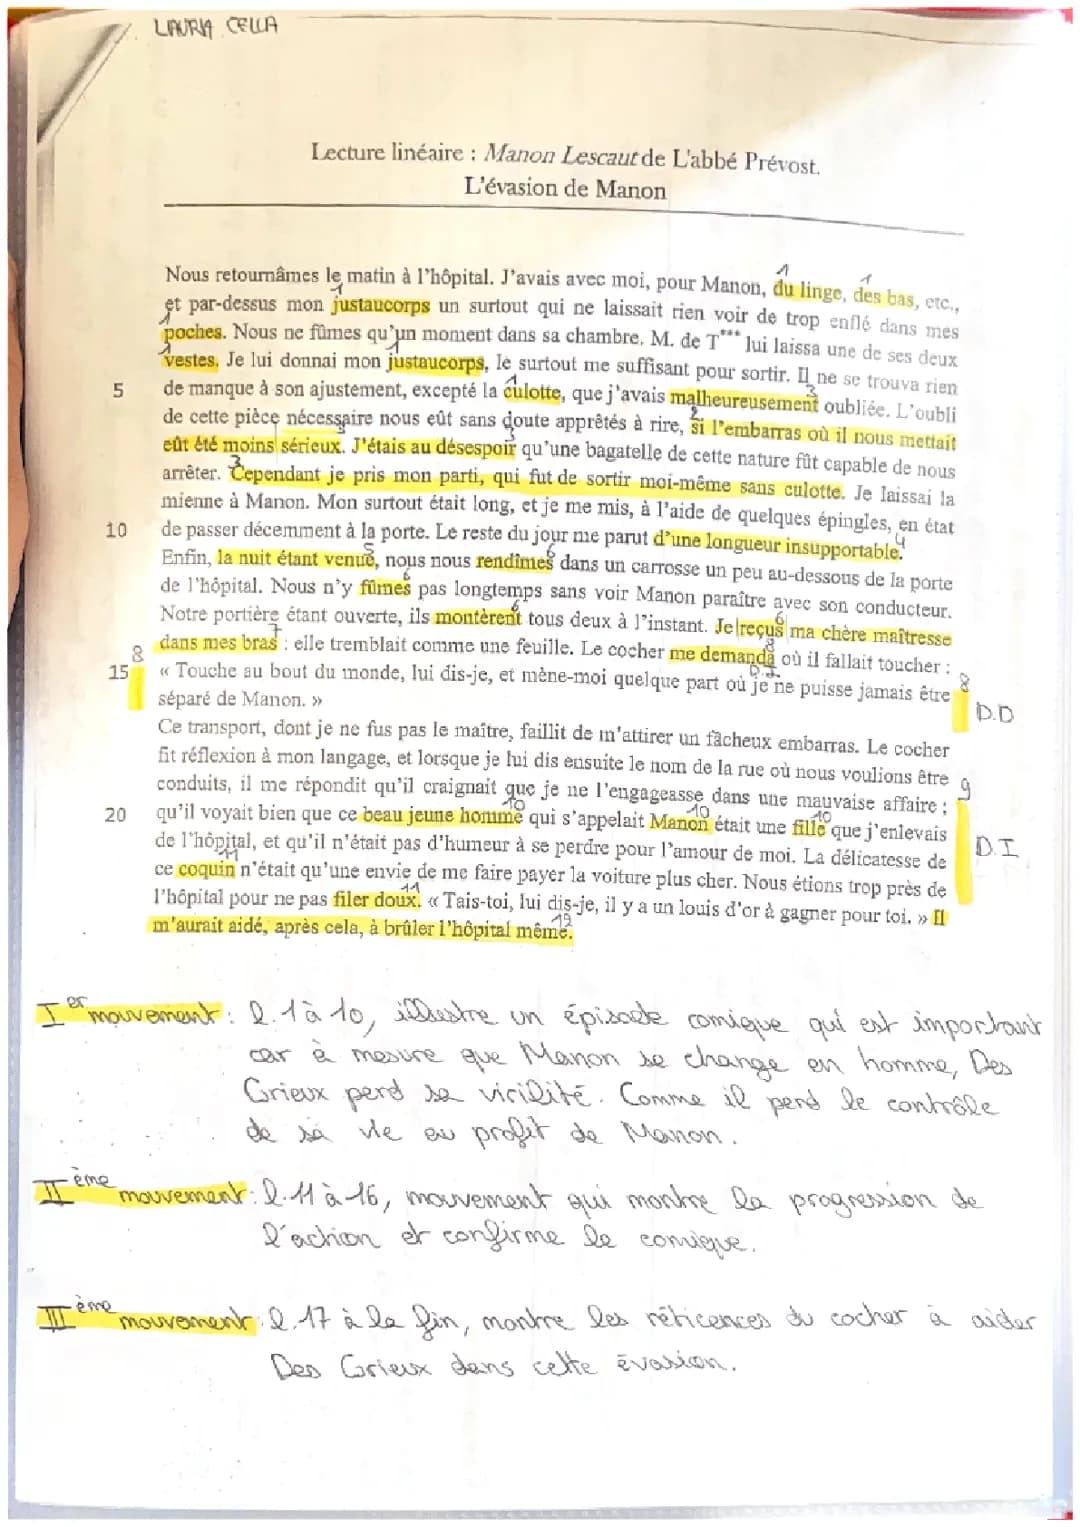 LAURIA CELLA
Lecture linéaire : Manon Lescaut de L'abbé Prévost.
L'évasion de Manon
Nous retournâmes le matin à l'hôpital. J'avais avec moi, pour Manon, du linge, des bas, etc.,
et par-dessus mon justaucorps un surtout qui ne laissait rien voir de trop enflé dans mes
poches. Nous ne fûmes qu'un moment dans sa chambre. M. de T*** lui laissa une de ses deux
vestes. Je lui donnai mon justaucorps, le surtout me suffisant pour sortir. Il ne se trouva rien
5 de manque à son ajustement, excepté la culotte, que j'avais malheureusement oubliée. L'oubli
de cette pièce nécessaire nous eût sans doute apprêtés à rire, si l'embarras où il nous mettait
eût été moins sérieux. J'étais au désespoir qu'une bagatelle de cette nature fût capable de nous
arrêter. Cependant je pris mon parti, qui fut de sortir moi-même sans culotte. Je laissai la
mienne à Manon. Mon surtout était long, et je me mis, à l'aide de quelques épingles, en état
10 de passer décemment à la porte. Le reste du jour me parut d'une longueur insupportable.
Enfin, la nuit étant venue, nous nous rendîmes dans un carrosse un peu au-dessous de la porte
de l'hôpital. Nous n'y fûmes pas longtemps sans voir Manon paraître avec son conducteur.
Notre portière étant ouverte, ils montèrent tous deux à l'instant. Je reçus ma chère maîtresse
dans mes bras : elle tremblait comme une feuille. Le cocher me demanda où il fallait toucher :
15 « Touche au bout du monde, lui dis-je, et mène-moi quelque part où je ne puisse jamais être
séparé de Manon. » D.D
Ce transport, dont je ne fus pas le maître, faillit de m'attirer un fâcheux embarras. Le cocher
fit réflexion à mon langage, et lorsque je lui dis ensuite le nom de la rue où nous voulions être
conduits, il me répondit qu'il craignait que je ne l'engageasse dans une mauvaise affaire ;
20 qu'il voyait bien que ce beau jeune homme qui s'appelait Manon était une fille que j'enlevais
de l'hôpital, et qu'il n'était pas d'humeur à se perdre pour l'amour de moi. La délicatesse de D.I
ce coquin n'était qu'une envie de me faire payer la voiture plus cher. Nous étions trop près de
l'hôpital pour ne pas filer doux. « Tais-toi, lui dis-je, il y a un louis d'or à gagner pour toi. » Il
m'aurait aidé, après cela, à brûler l'hôpital même.
I er mouvement : l. 1 à 10, illustre un épisode comique qui est important
car à mesure que Manon se change en homme, Des
Grieux perd sa virilité. Comme il perd le contrôle
de sa vie au profit de Manon.
II ème mouvement : l. 11 à 16, mouvement qui montre la progression de
l'action et confirme le comique.
III ème mouvement : l. 17 à la fin, montre les réticences du cocher à aider
Des Grieux dans cette évasion.